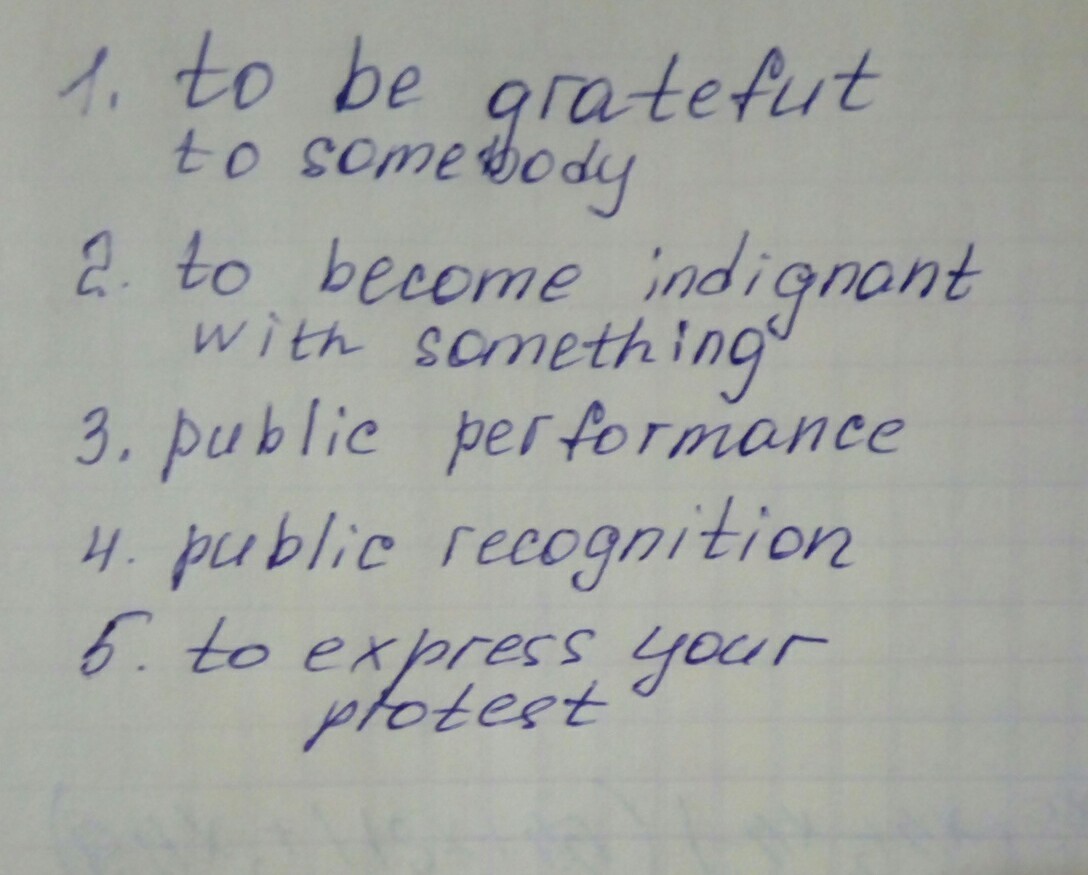 1. to be gratefut
to somebody
2. to become indignant
with something
3. public performance
4. public recognition
5. to express your
protest